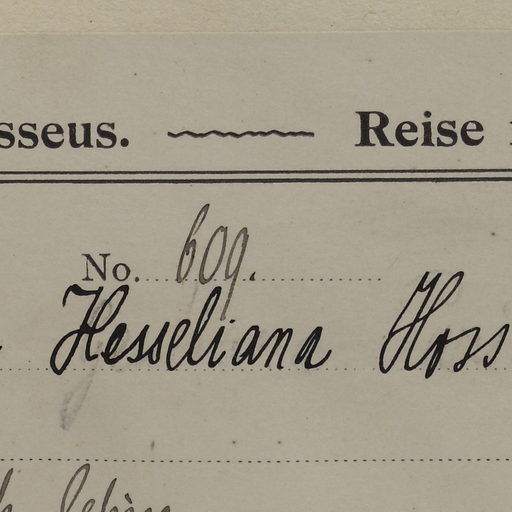 sseus. Reise
No. 609.
Hesseliana Hoss